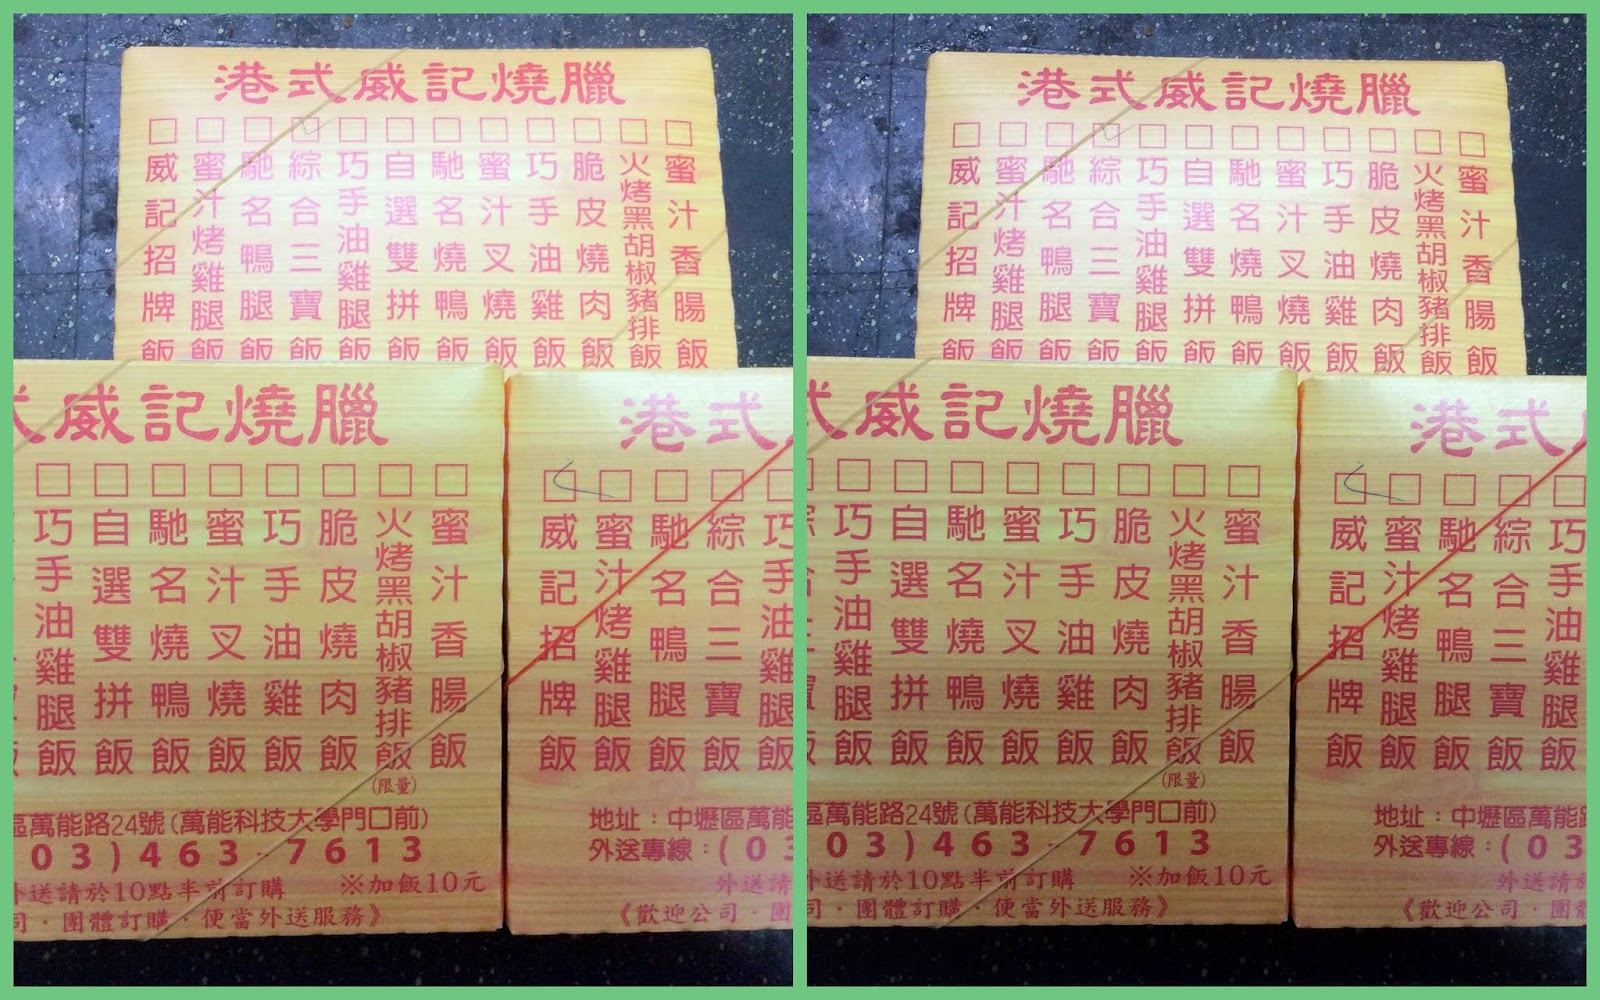 港式威記燒臘
威記招牌飯
蜜汁烤雞腿飯
馳名鴨腿飯
綜合三寶飯
巧手油雞腿飯
自選雙拼飯
馳名燒鴨飯
蜜汁叉燒飯
巧手油雞飯
脆皮燒肉飯
火烤黑胡椒豬排飯
蜜汁香腸飯
式威記燒臘
巧手油雞腿飯
自選雙拼飯
馳名燒鴨飯
蜜汁叉燒飯
巧手油雞飯
脆皮燒肉飯
火烤黑胡椒豬排飯(限量)
蜜汁香腸飯
區萬能路24號(萬能科技大學門口前)
03)463-7613
外送請於10點半前訂購 ※加飯10元
司．團體訂購．便當外送服務》
港式
威記招牌飯
蜜汁烤雞腿飯
馳名鴨腿飯
綜合三寶飯
巧手油雞腿飯
地址：中壢區萬能
外送專線：(03
外送請
《歡迎公司．團
港式威記燒臘
威記招牌飯
蜜汁烤雞腿飯
馳名鴨腿飯
綜合三寶飯
巧手油雞腿飯
自選雙拼飯
馳名燒鴨飯
蜜汁叉燒飯
巧手油雞飯
脆皮燒肉飯
火烤黑胡椒豬排飯
蜜汁香腸飯
式威記燒臘
巧手油雞腿飯
自選雙拼飯
馳名燒鴨飯
蜜汁叉燒飯
巧手油雞飯
脆皮燒肉飯
火烤黑胡椒豬排飯(限量)
蜜汁香腸飯
區萬能路24號(萬能科技大學門口前)
03)463-7613
外送請於10點半前訂購 ※加飯10元
司．團體訂購．便當外送服務》
港式
威記招牌飯
蜜汁烤雞腿飯
馳名鴨腿飯
綜合三寶飯
巧手油雞腿飯
地址：中壢區萬能
外送專線：(03
外送請
《歡迎公司．團